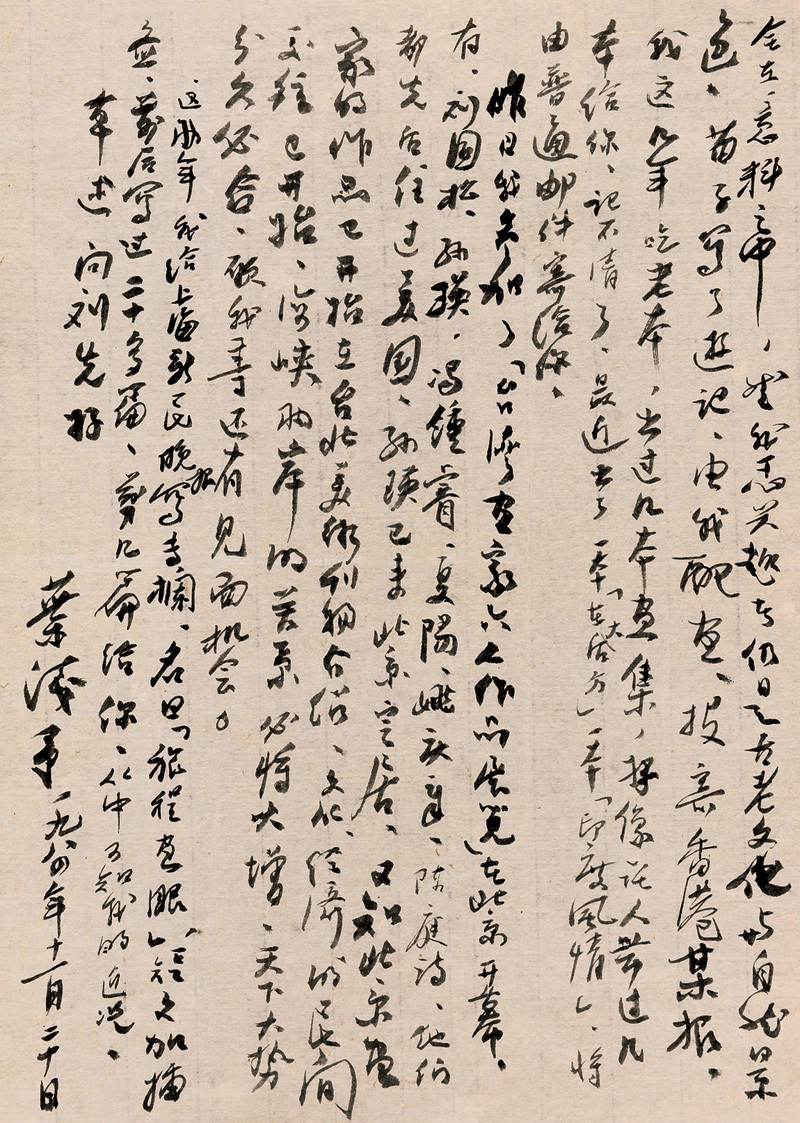 全在意料之中，虽我志兴趣者仍旧是古老文化与自然景
色、苗子写了游记、由我配画、投寄香港某报。
我这几年吃老本，出过几本画集，好像托人带过几
本给你、记不清了、最近出了一本「在大后方」一本「印度风情」、将
由普通邮件寄给你、
昨日我参加了「台湾画家六人作品展览」在北京开幕。
有、刘国松、孙瑛、冯钟睿、夏阳、姚庆章、陈庭诗、他们
都先后住过美国、孙瑛已来北京定居、又知北京画
家的作品已开始在台北美术刊物介绍、文化、经济的民间
交往已开始、海峡两岸的关系必将大增、天下大势
分久必合、愿我等还有见面机会。
这两年我给上海新民晚报写专栏、名曰「旅程画眼」短文加插
画、前后写过二十多篇、剪几篇给你、从中可知我的近况、
草述 向刘先好
葉浅予 一九八四年十一月二十日